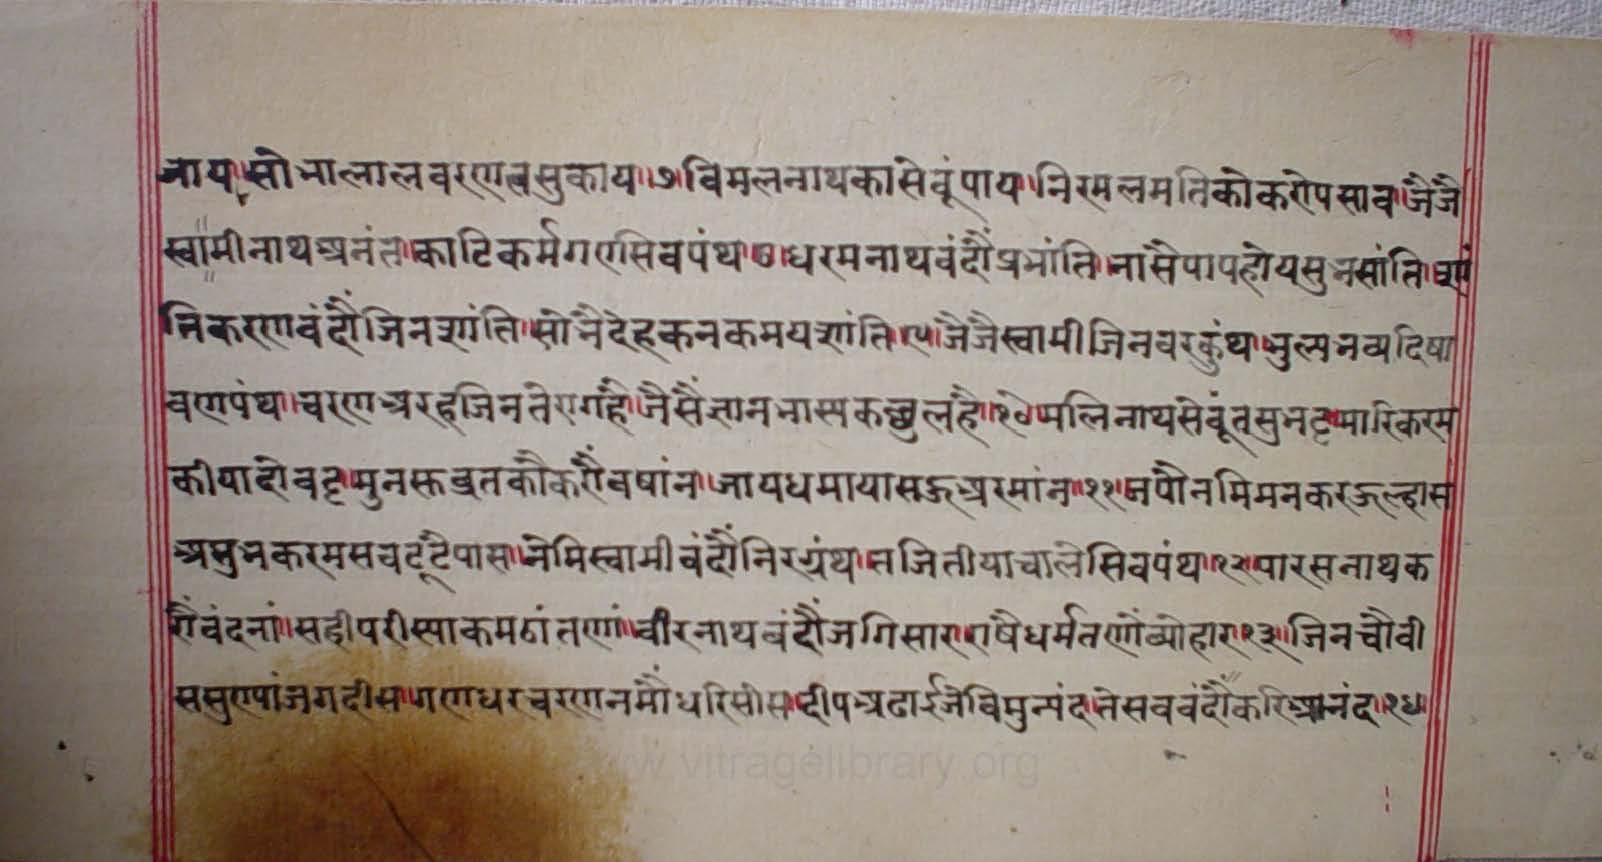 नाय॥सोभालालवरणत्रसुकाय॥७॥विमलनाथकासेवूंपाय॥निरमलमतिकोकरोपसाव॥जैजै
स्वामीनाथअनंत॥काटिकर्मगएसिवपंथ॥८॥धरमनाथवंदौंअभांति॥नांसैपापहोयसुभसांति॥शां
तिकरणवंदौंजिनशांति॥सोनैदेहकनकमयशांति॥९॥जैजैस्वामीजिनवरकुंथ॥भुल्पभव्यदिषा
वणपंथ॥चरणअरहजिनतेएगहै॥जैसैंज्ञानभास्पकच्चुलहै॥१०॥मलिनाथसेवूंतसुभट॥मारिकरम
कीयादोवट॥मुनसुव्रतकौकरौंवषांन॥जायधमायासऊअरमांन॥११॥जपौनमिमनकरऊल्हास
असुभकरमसवटूंटैपास॥नेमिस्वामीवंदौंनिरग्रंथ॥तजितीयाचालेसिवपंथ॥१२॥पारसनाथक
रौंवंदनां॥सहीपरीस्पाकमठांतणां॥वीरनाथवंदौंजगिसार॥राषैधर्मतणौंव्योहार॥१३॥जिनचौवी
ससुणपांजगदीस॥गणधरचरणनमौंधरिसीस॥दीपअढाईजेविमुन्यंद॥तेसववंदौंकरिआनंद॥१४॥
www.vitragelibrary.org